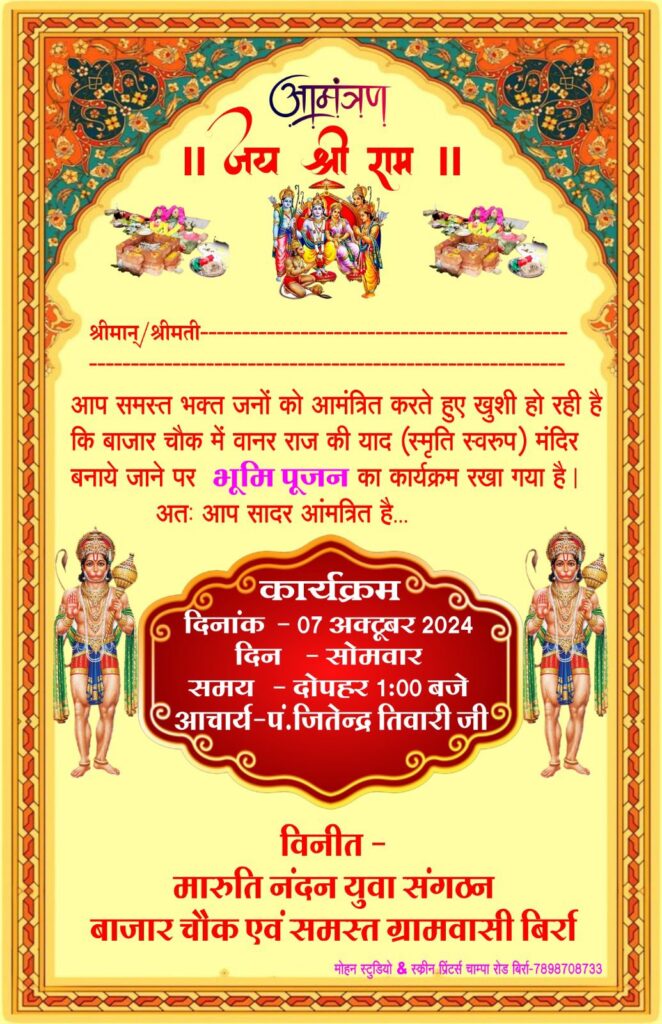 आमंत्रण
॥ जय श्री राम ॥
श्रीमान्/श्रीमती--------------------------------------------
---------------------------------------------------------
आप समस्त भक्त जनों को आमंत्रित करते हुए खुशी हो रही है
कि बाजार चौक में वानर राज की याद (स्मृति स्वरुप) मंदिर
बनाये जाने पर भूमि पूजन का कार्यक्रम रखा गया है।
अतः आप सादर आंमत्रित है...
कार्यक्रम
दिनांक - 07 अक्टूबर 2024
दिन - सोमवार
समय - दोपहर 1:00 बजे
आचार्य-पं.जितेन्द्र तिवारी जी
विनीत -
मारुति नंदन युवा संगठन
बाजार चौक एवं समस्त ग्रामवासी बिर्रा
मोहन स्टुडियो & स्क्रीन प्रिंटर्स चाम्पा रोड बिर्रा-7898708733